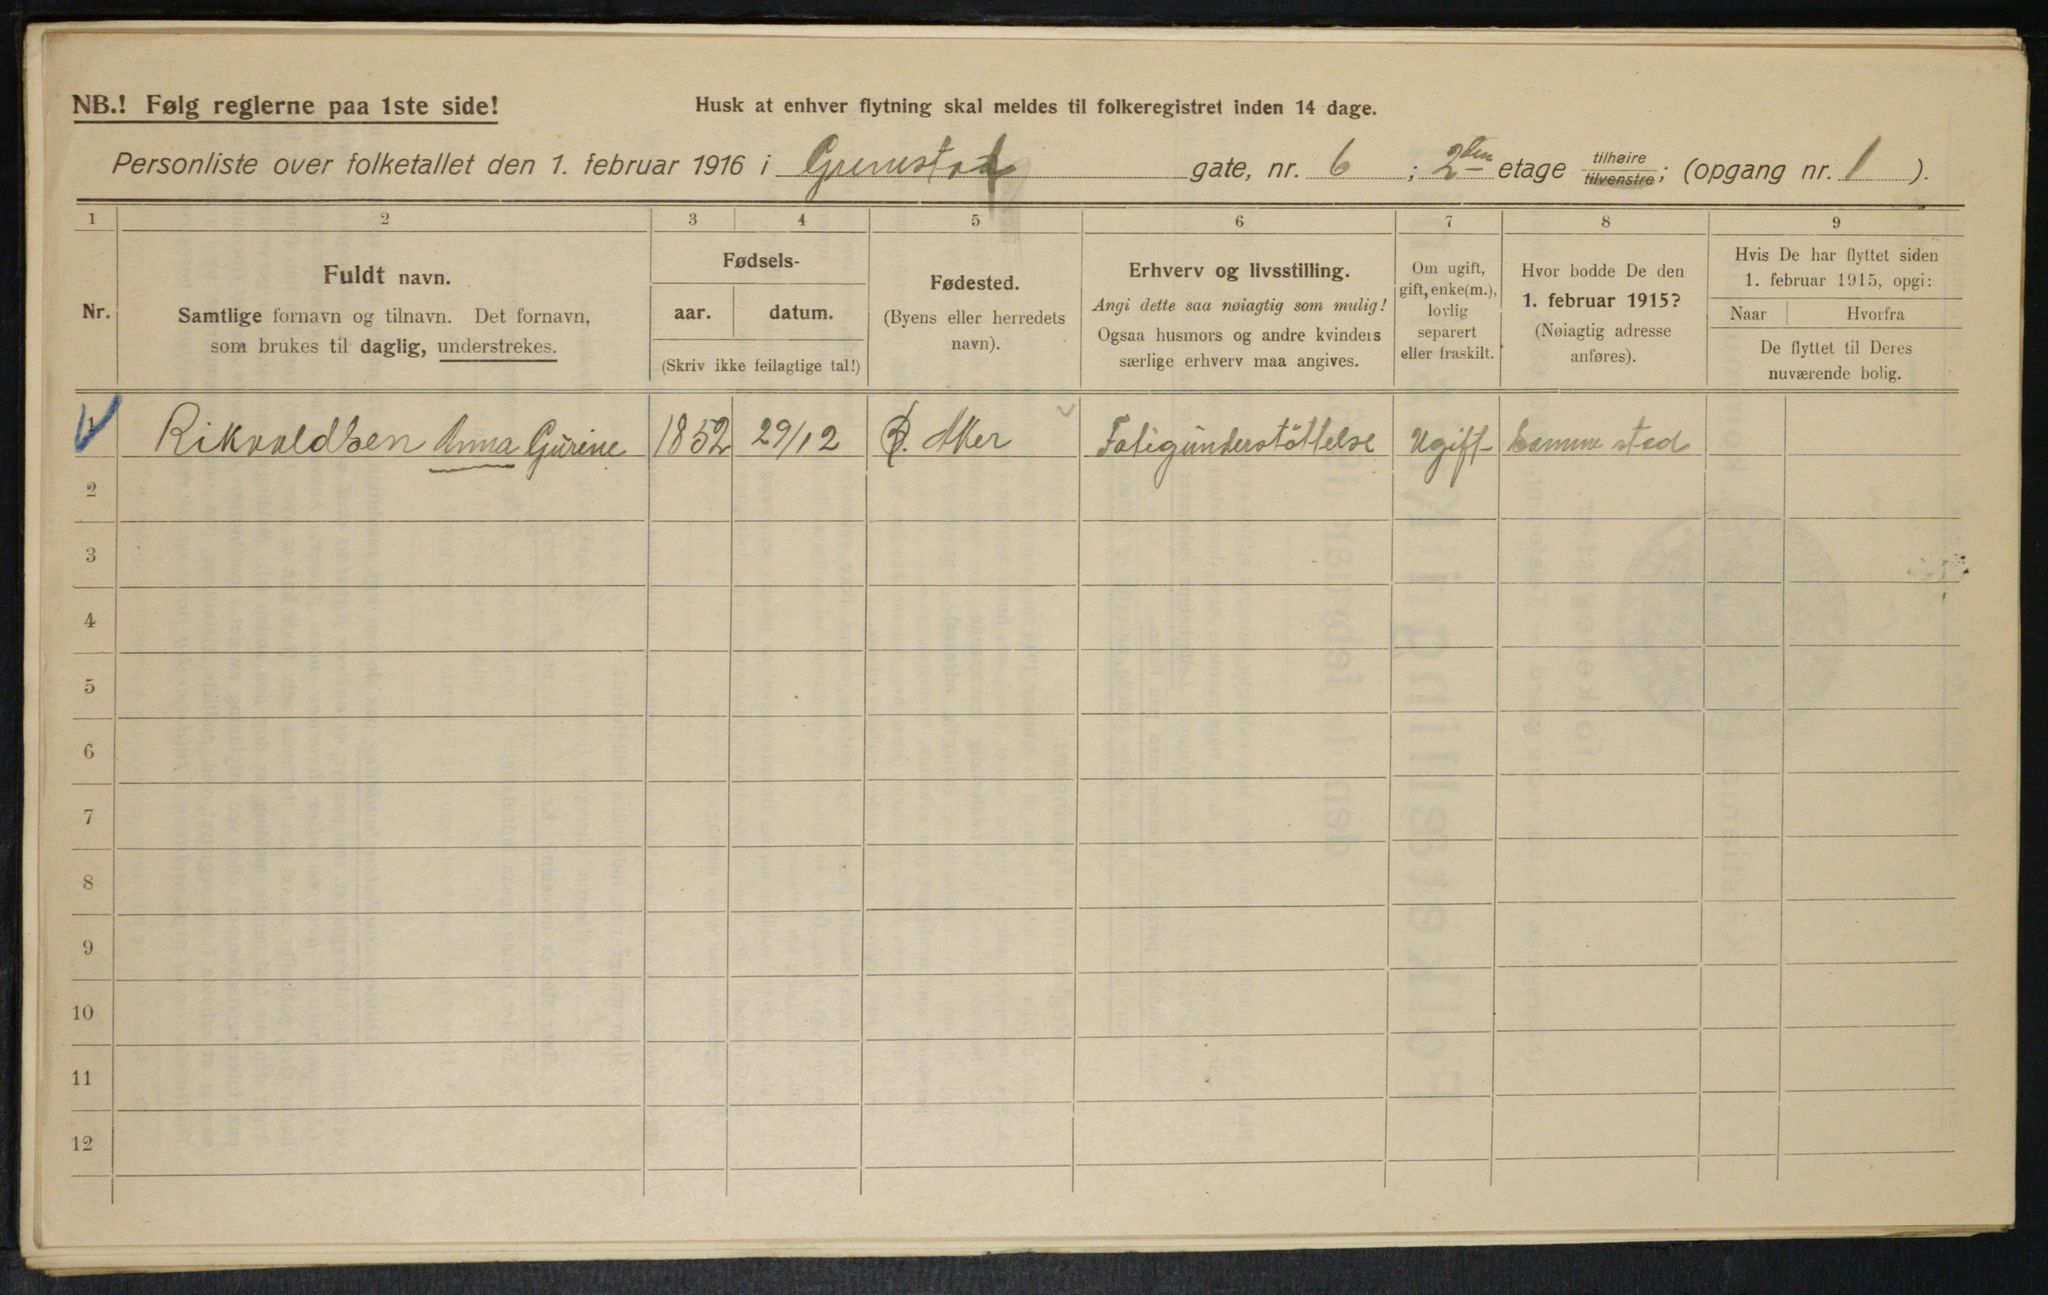 NB.! Følg reglerne paa 1ste side!
Husk at enhver flytning skal meldes til folkeregistret inden 14 dage.
Personliste over folketallet den 1. februar 1916 i Gremstad gate, nr. 6 ; 2den etage tilhøire tilvenstre; (opgang nr. 1 ).
1 2 3 4 5 6 7 8 9
Nr.
Fuldt navn.
Samtlige fornavn og tilnavn. Det fornavn,
som brukes til daglig, understrekes.
Fødsels-
aar. datum.
(Skriv ikke feilagtige tal!)
Fødested.
(Byens eller herredets
navn).
Erhverv og livsstilling.
Angi dette saa nøiagtig som mulig!
Ogsaa husmors og andre kvinders
særlige erhverv maa angives.
Om ugift,
gift, enke(m.),
lovlig
separert
eller fraskilt.
Hvor bodde De den
1. februar 1915?
(Nøiagtig adresse
anføres).
Hvis De har flyttet siden
1. februar 1915, opgi:
Naar Hvorfra
De flyttet til Deres
nuværende bolig.
1 Rikvaldsen Anna Gurine 1852 29/12 Ø. Aker Fatigunderstöttelse Ugift Samme sted
2
3
4
5
6
7
8
9
10
11
12